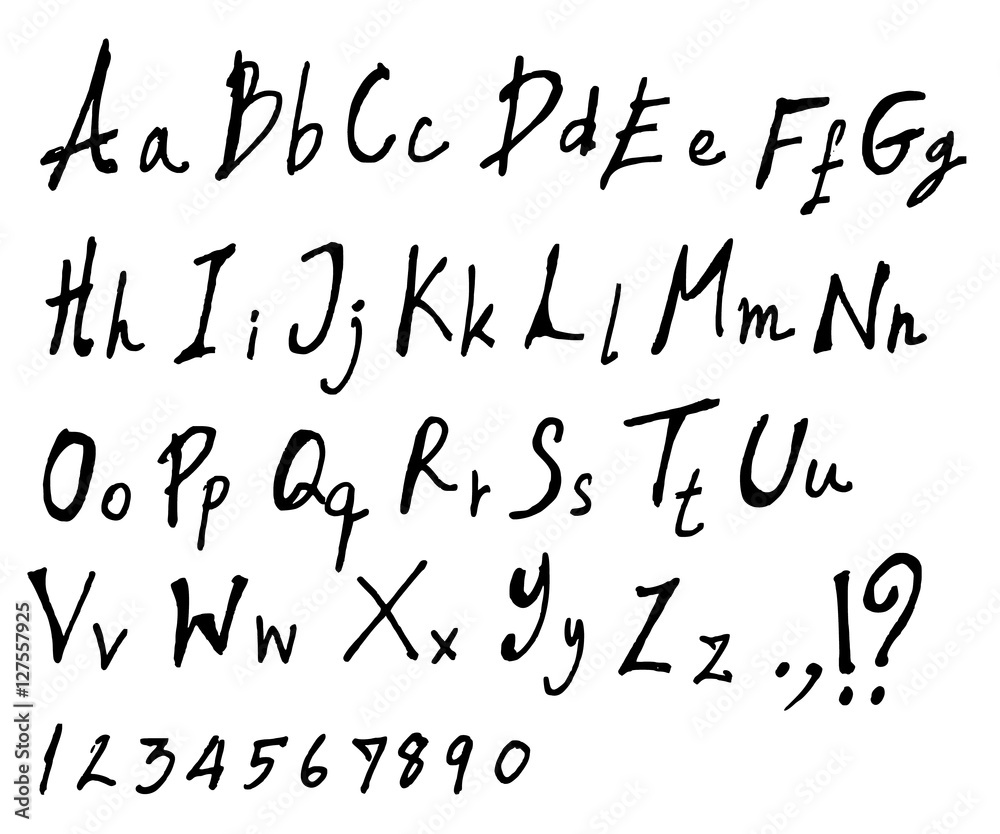 Aa Bb Cc Dd Ee Ff Gg
Hh Ii Jj Kk Ll Mm Nn
Oo Pp Qq Rr Ss Tt Uu
Vv Ww Xx Yy Zz .,!?
1234567890
Adobe Stock | #127557925